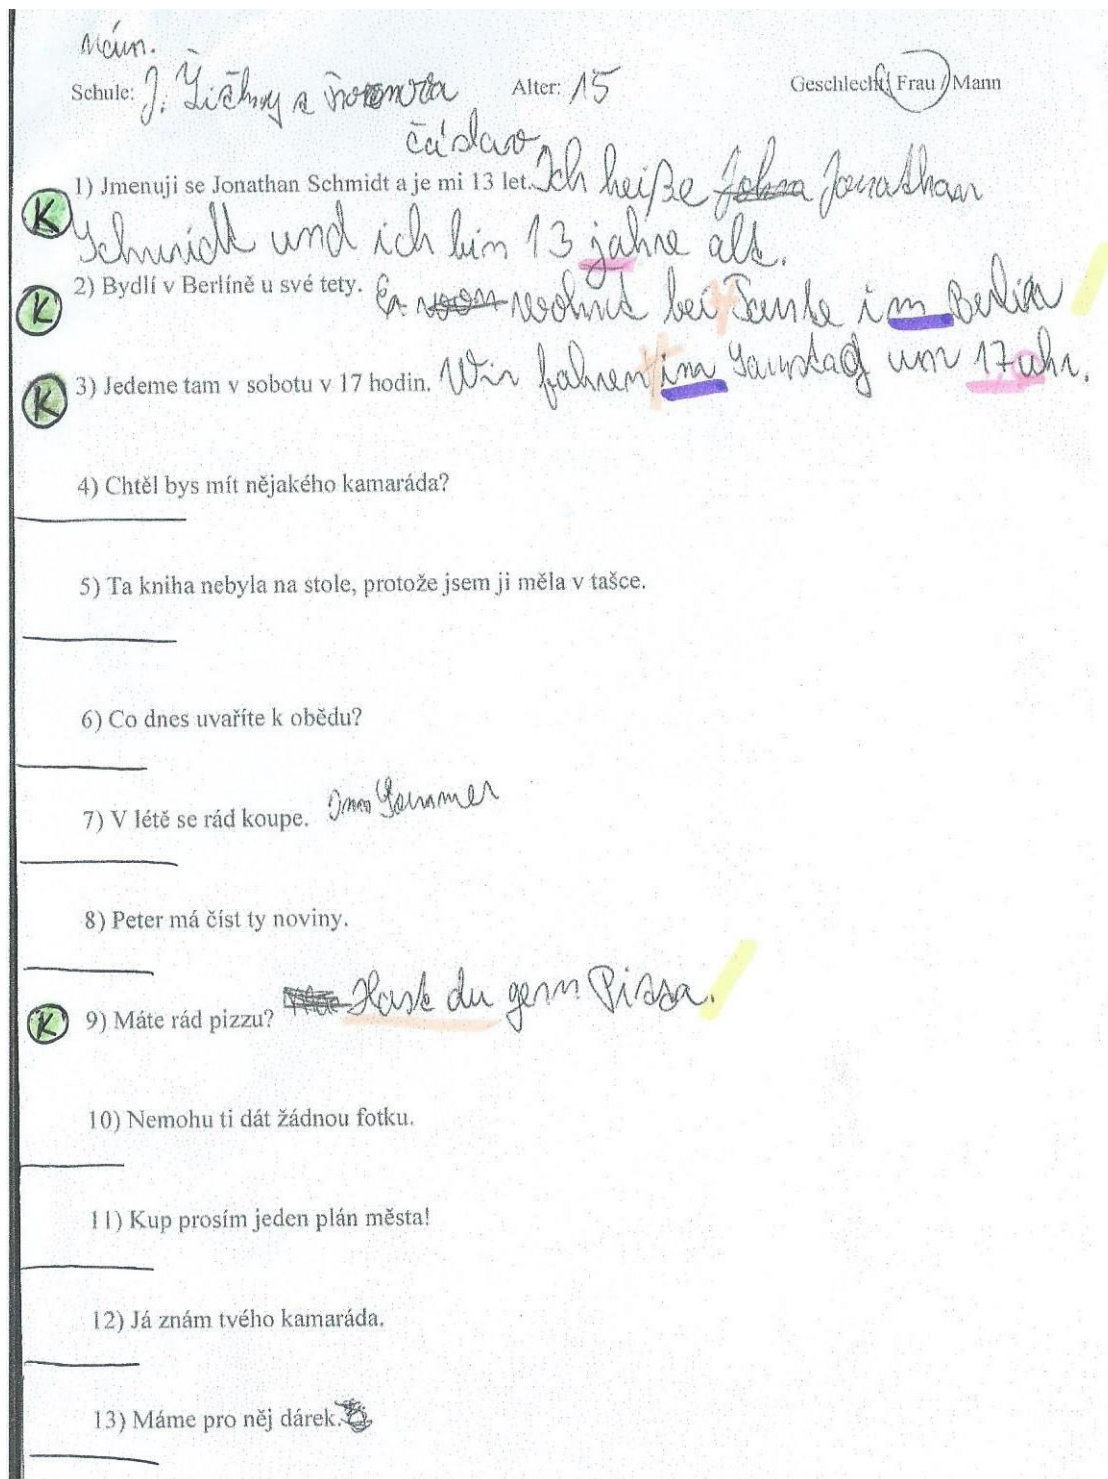 nám.
Schule: J. Žižky z Trocnova Alter: 15 Geschlecht (Frau / Mann
Čáslav
1) Jmenuji se Jonathan Schmidt a je mi 13 let. Ich heiße Jonathan
K
Schmidt und ich bin 13 jahre alt.
K 2) Bydlí v Berlíně u své tety. Er wohnt bei Tante im Berlin
K 3) Jedeme tam v sobotu v 17 hodin. Wir fahren im Samstag um 17 uhr.
4) Chtěl bys mít nějakého kamaráda?
5) Ta kniha nebyla na stole, protože jsem ji měla v tašce.
6) Co dnes uvaříte k obědu?
7) V létě se rád koupe. Im Sommer
8) Peter má číst ty noviny.
K 9) Máte rád pizzu? Hast du gern Pizza.
10) Nemohu ti dát žádnou fotku.
11) Kup prosím jeden plán města!
12) Já znám tvého kamaráda.
13) Máme pro něj dárek.